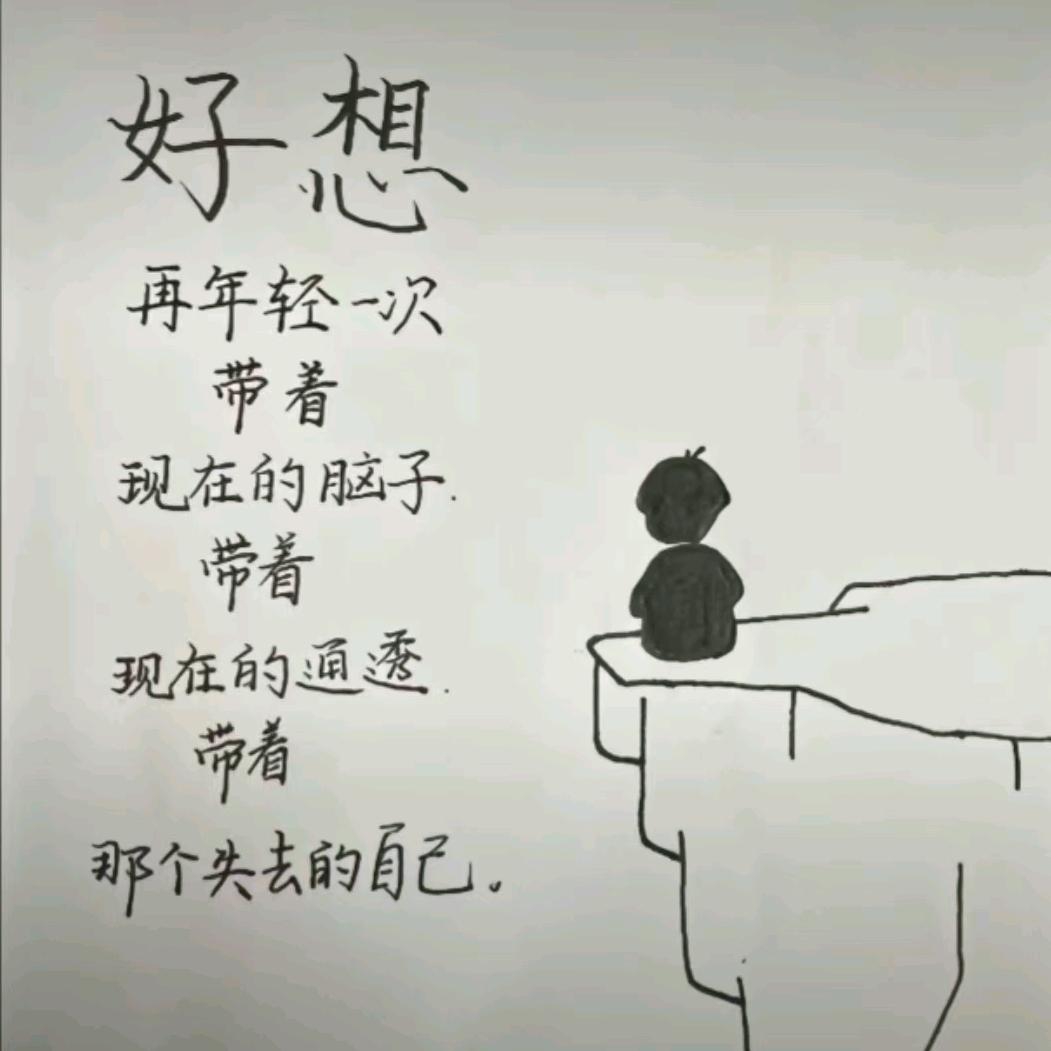 好想
再年轻一次
带着
现在的脑子.
带着
现在的通透.
带着
那个失去的自己。